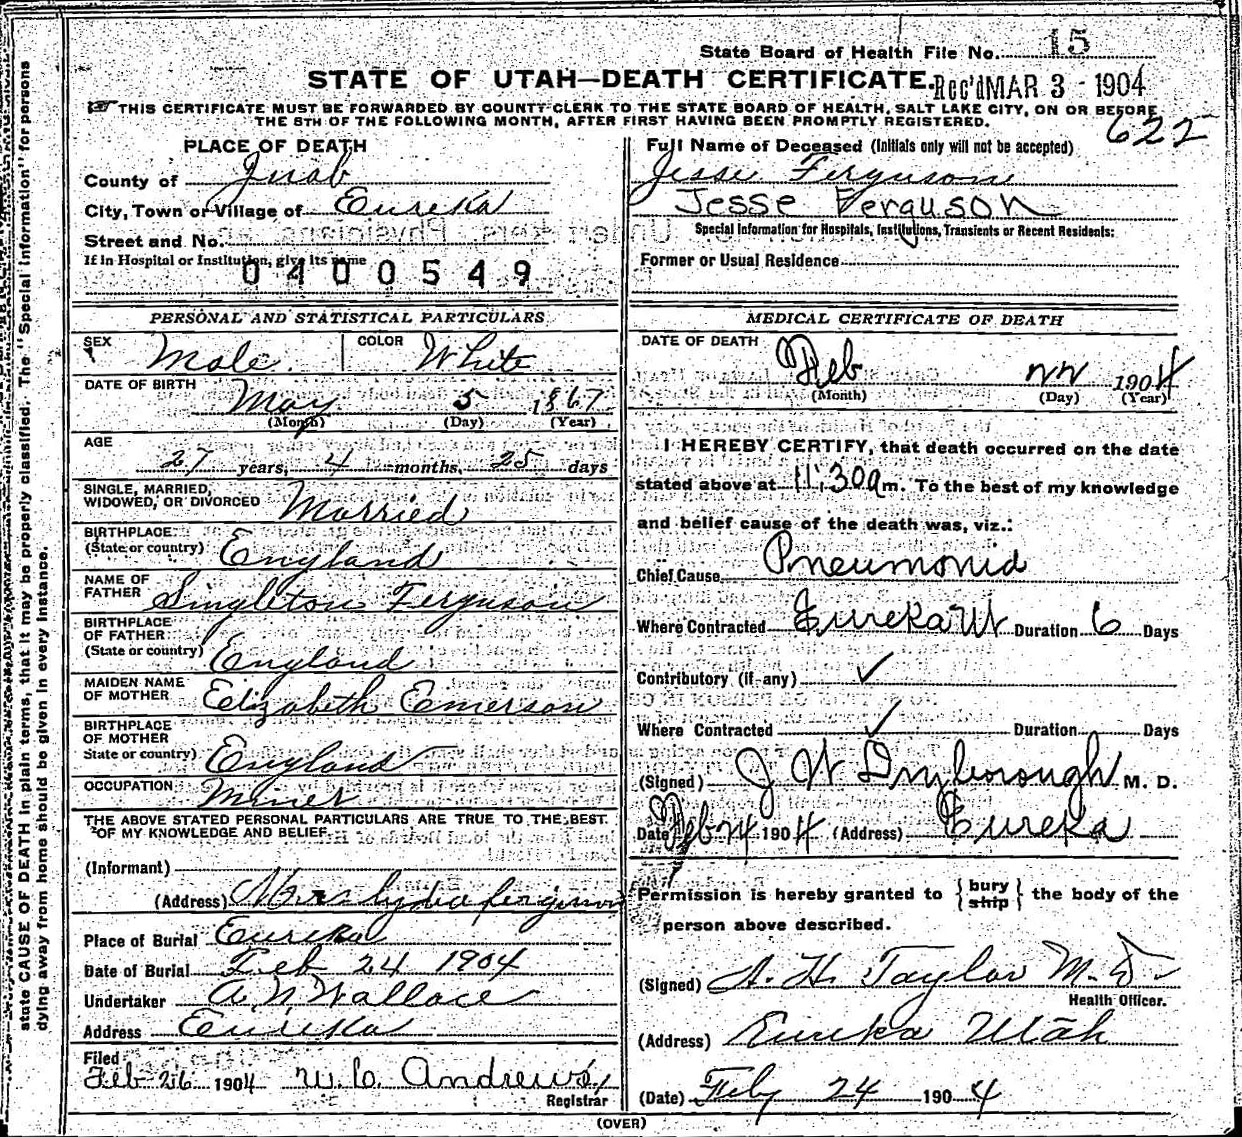 State Board of Health File No. 15
STATE OF UTAH—DEATH CERTIFICATE. Rec'd MAR 3 - 1904
THIS CERTIFICATE MUST BE FORWARDED BY COUNTY CLERK TO THE STATE BOARD OF HEALTH, SALT LAKE CITY, ON OR BEFORE
THE 5TH OF THE FOLLOWING MONTH, AFTER FIRST HAVING BEEN PROMPTLY REGISTERED.
622
PLACE OF DEATH
County of Juab
City, Town or Village of Eureka
Street and No.
If in Hospital or Institution, give its name
0400549
Full Name of Deceased (Initials only will not be accepted)
Jesse Ferguson
Jesse Ferguson
Special Information for Hospitals, Institutions, Transients or Recent Residents:
Former or Usual Residence
PERSONAL AND STATISTICAL PARTICULARS
SEX Male. COLOR White
DATE OF BIRTH
May 5 1867
(Month) (Day) (Year)
AGE
27 years, 4 months, 25 days
SINGLE, MARRIED,
WIDOWED, OR DIVORCED Married
BIRTHPLACE
(State or country) England
NAME OF
FATHER Singleton Ferguson
BIRTHPLACE
OF FATHER
(State or country) England
MAIDEN NAME
OF MOTHER Elizabeth Emerson
BIRTHPLACE
OF MOTHER
State or country) England
OCCUPATION Miner
THE ABOVE STATED PERSONAL PARTICULARS ARE TRUE TO THE BEST
OF MY KNOWLEDGE AND BELIEF.
(Informant)
(Address) Mrs Lydia ferguson
Place of Burial Eureka
Date of Burial Feb 24 1904
Undertaker A N Wallace
Address Eureka
Filed
Feb 26 1904 W. C. Andrews
Registrar
MEDICAL CERTIFICATE OF DEATH
DATE OF DEATH
Feb 22 1904
(Month) (Day) (Year)
I HEREBY CERTIFY, that death occurred on the date
stated above at 11:30 a m. To the best of my knowledge
and belief cause of the death was, viz.:
Chief Cause Pneumonia
Where Contracted Eureka Ut Duration 6 Days
Contributory (if any) ✓
Where Contracted ✓ Duration Days
(Signed) J W M. D.
Date Feb 24 1904 (Address) Eureka
Permission is hereby granted to { bury ship } the body of the
person above described.
(Signed) A. H. Taylor M. D
Health Officer.
(Address) Eureka Utah
(Date) Feby 24 1904
(OVER)
state CAUSE OF DEATH in plain terms, that it may be properly classified. The "Special Information" for persons
dying away from home should be given in every instance.